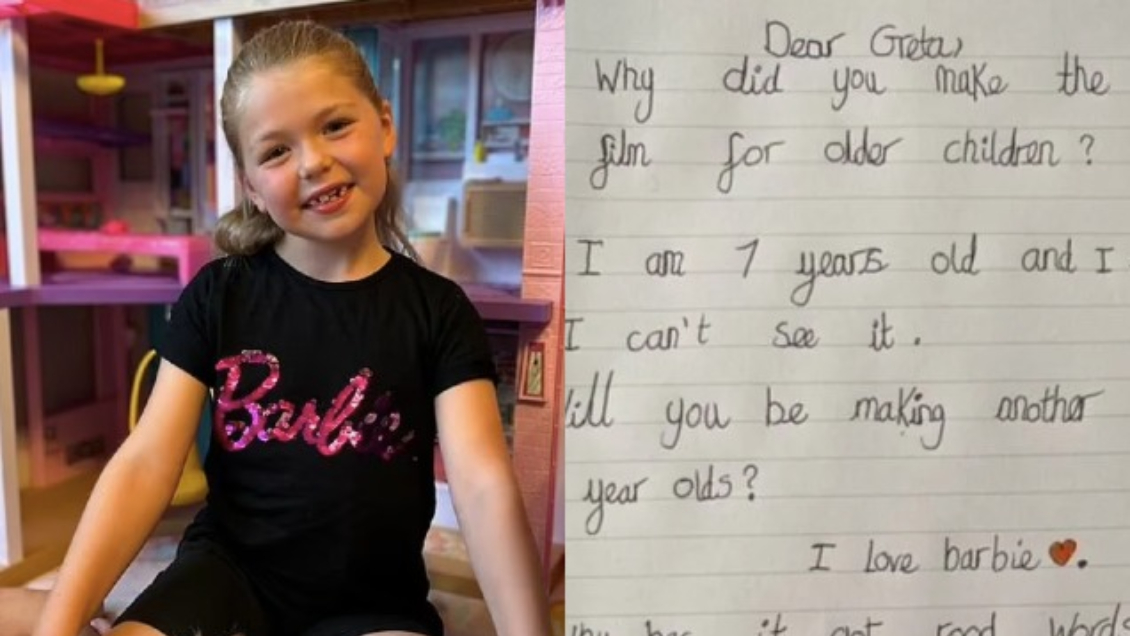 Barbie
Dear Greta,
Why did you make the
film for older children?
I am 7 years old and I
I can't see it.
ill you be making another
year olds?
I love barbie ❤.
it got rood words